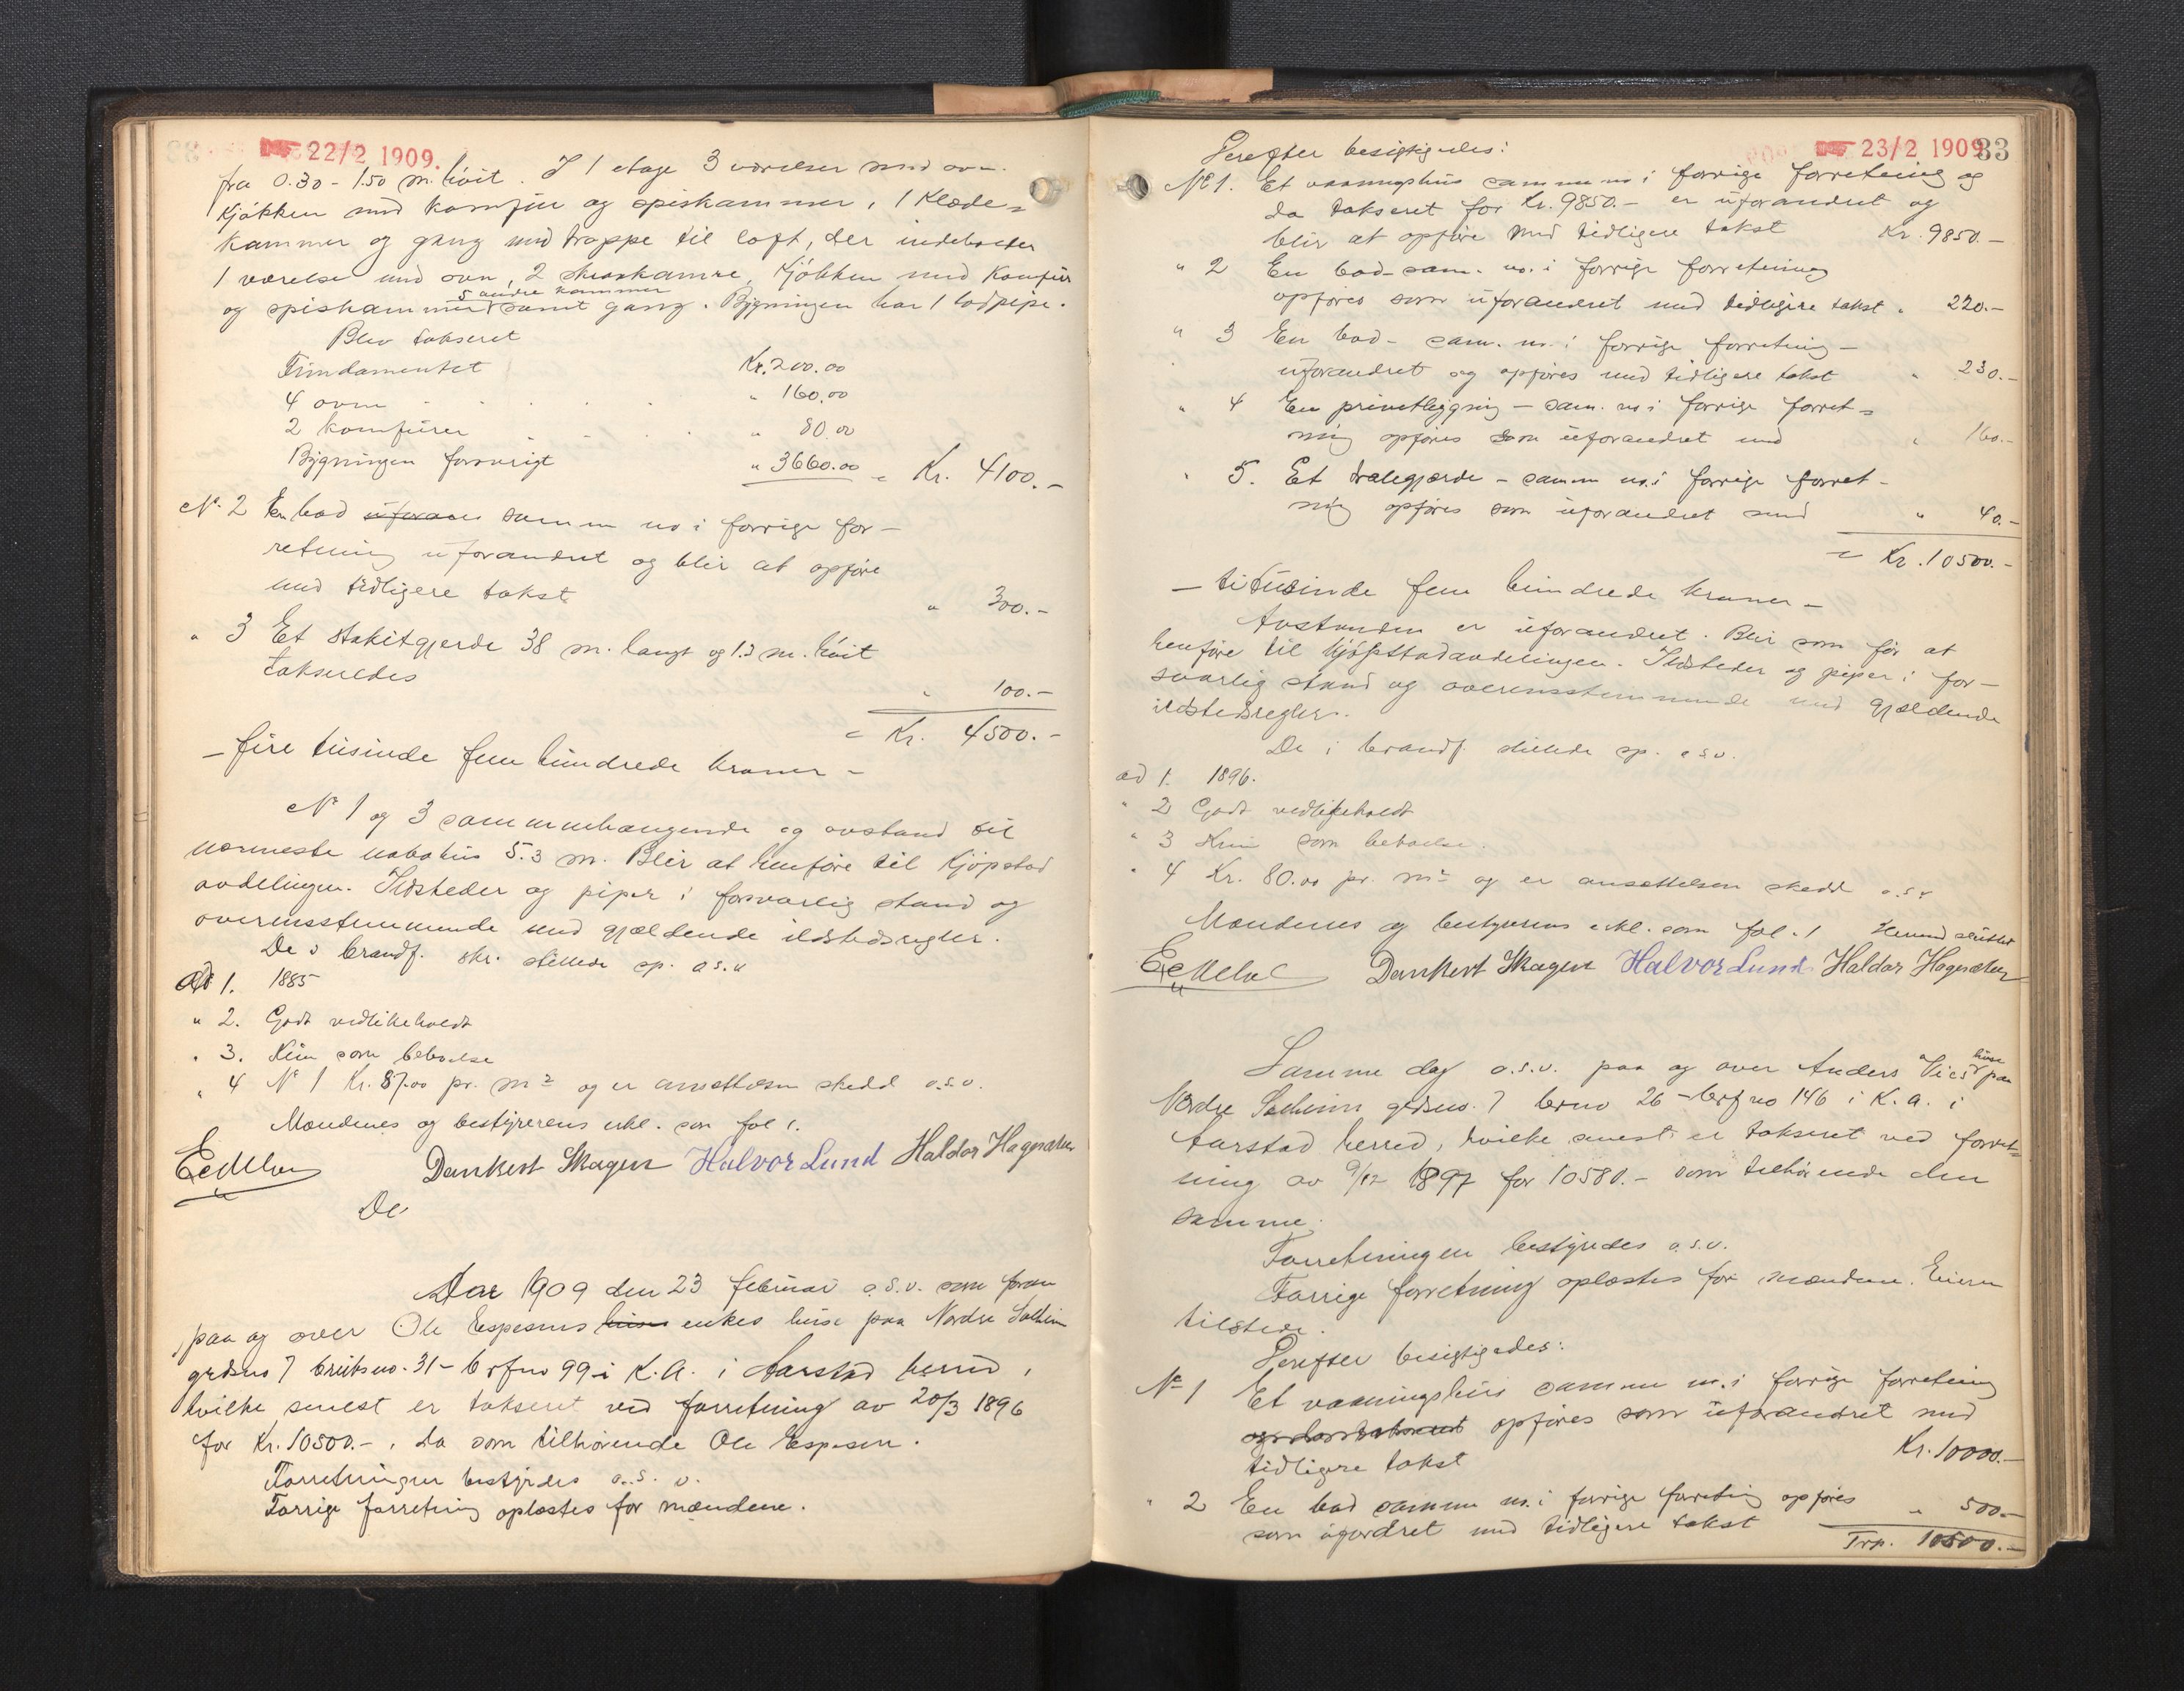 22/2 1909.
fra 0.30 - 1.50 m. høit. I 1 etage 3 værelser med ovn.
Kjøkken med komfur og spiskammer, 1 Klæde=
kammer og gang med trappe til loft, der indeholder
1 værelse med ovn, 2 skraakamre, kjøkken med Komfur
5 andre kammer
og spiskammer samt gang. Bygningen har 1 lodpipe.
Blev takseret
Fundamentet Kr. 200.00
4 ovne " 160.00
2 komfurer " 80.00
Bygningen forøvrigt " 3660.00 = Kr. 4100.-
No. 2 En bod samme no i forrige for-
retning uforandret og blir at opføre
med tidligere takst " 300.-
" 3 Et stakitgjerde 38 m. langt og 1.3 m. høit
takseredes " 100.-
= Kr. 4500.-
- fire tusinde fem hundrede kroner -
No 1 og 3 sammenhængende og avstand til
nærmeste nabohus 5.3 m. Blir at henføre til Kjøpstad
avdelingen. Ildsteder og piper i forsvarlig stand og
overensstemmende med gjældende ildstedsregler.
De i brandf. skr. stillede sp. o.s.v
Ad 1. 1885
" 2. Godt vedlikeholdt
" 3. Kun som beboelse
" 4 No 1 Kr. 87.00 pr. m2 og er ansættelsen skedd o.s.v.
Mændenes og bestyrerens erkl. som fol 1.
Dankert Skagen Halvor Lund Haldor Hagesæter
De
Aar 1909 den 23 februar o.s.v. som foran
paa og over Ole Espesens huse enkes huse paa Nordre Solheim
grdsno 7 bruksno. 31 - brfno 99 i K.A. i Aarstad herred,
hvilke senest er takseret ved forretning av 20/3 1896
for Kr. 10500.-, da som tilhørende Ole Espesen.
Forretningen bestyrdes o.s.v.
Forrige forretning oplæstes for mændene.
23/2 1909 33
Derefter besigtigedes:
No 1. Et vaaningshus samme no i forrige forretning og
da takseret for Kr. 9850.- er uforandret og
blir at opføre med tidligere takst Kr. 9850.-
" 2 En bod - sam. no. i forrige forretning
opføres som uforandret med tidligere takst " 220.-
" 3 En bod - sam. no. i forrige forretning -
uforandret og opføres med tidligere takst " 230.-
" 4 En privetbygning - sam. no i forrige forret=
ning opføres som uforandret med " 160.-
" 5. Et trælegjærde - samm no. i forrige forret-
ning opføres som uforandret med " 40.-
= Kr. 10500.-
- titusinde fem hundrede kroner -
Avstanden er uforandret. Blir som før at
henføre til Kjøpstadavdelingen. Ildsteder og piper i for-
svarlig stand og overensstemmende med gjældende
ildstedsregler.
De i brandf. stillede sp. o.s.v.
ad 1. 1896.
" 2 Godt vedlikeholdt
" 3 Kun som beboelse.
" 4 Kr. 80.00 pr. m2 og er ansættelsen skedd o.s.v
Mændenes og bestyrerens erkl. som fol. 1 Hermed sluttet
Dankert Skagen Halvor Lund Haldor Hagesæter
Samme dag o.s.v. paa og over Anders Vies huse paa
Nordre Solheim grdsno. 7 brno 26 - brfno 146 i K.a. i
Aarstad herred, hvilke senest er takseret ved forret=
ning av 9/12 1897 for 10580.- som tilhørende den
samme.
Forretningen bestyredes o.s.v.
Forrige forretning oplæstes for mændene. Eieren
tilstede.
Derefter besigtigedes:
No 1 Et vaaningshus samme no. i forrige forretning
opføres som uforandret med
tidligere takst Kr. 10000.-
" 2 En bod samme no. i forrige forretning opføres
som uforandret med tidligere takst " 500.-
Trp. 10500.-